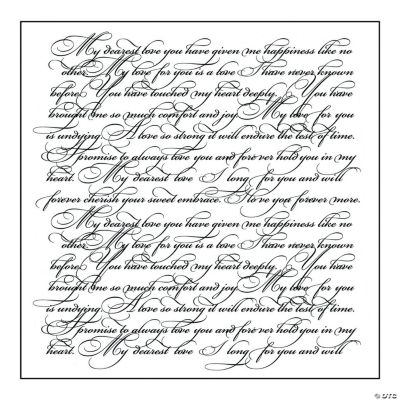 My dearest love you have given me happiness like no
other. My love for you is a love I have never known
before. You have touched my heart deeply. You have
brought me so much comfort and joy. My love for you
is undying. A love so strong it will endure the test of time.
I promise to always love you and forever hold you in my
heart. My dearest love I long for you and will
forever cherish your sweet embrace. I love you forever more.
My dearest love you have given me happiness like no
other. My love for you is a love I have never known
before. You have touched my heart deeply. You have
brought me so much comfort and joy. My love for you
is undying. A love so strong it will endure the test of time.
I promise to always love you and forever hold you in my
heart. My dearest love I long for you and will
© OTC